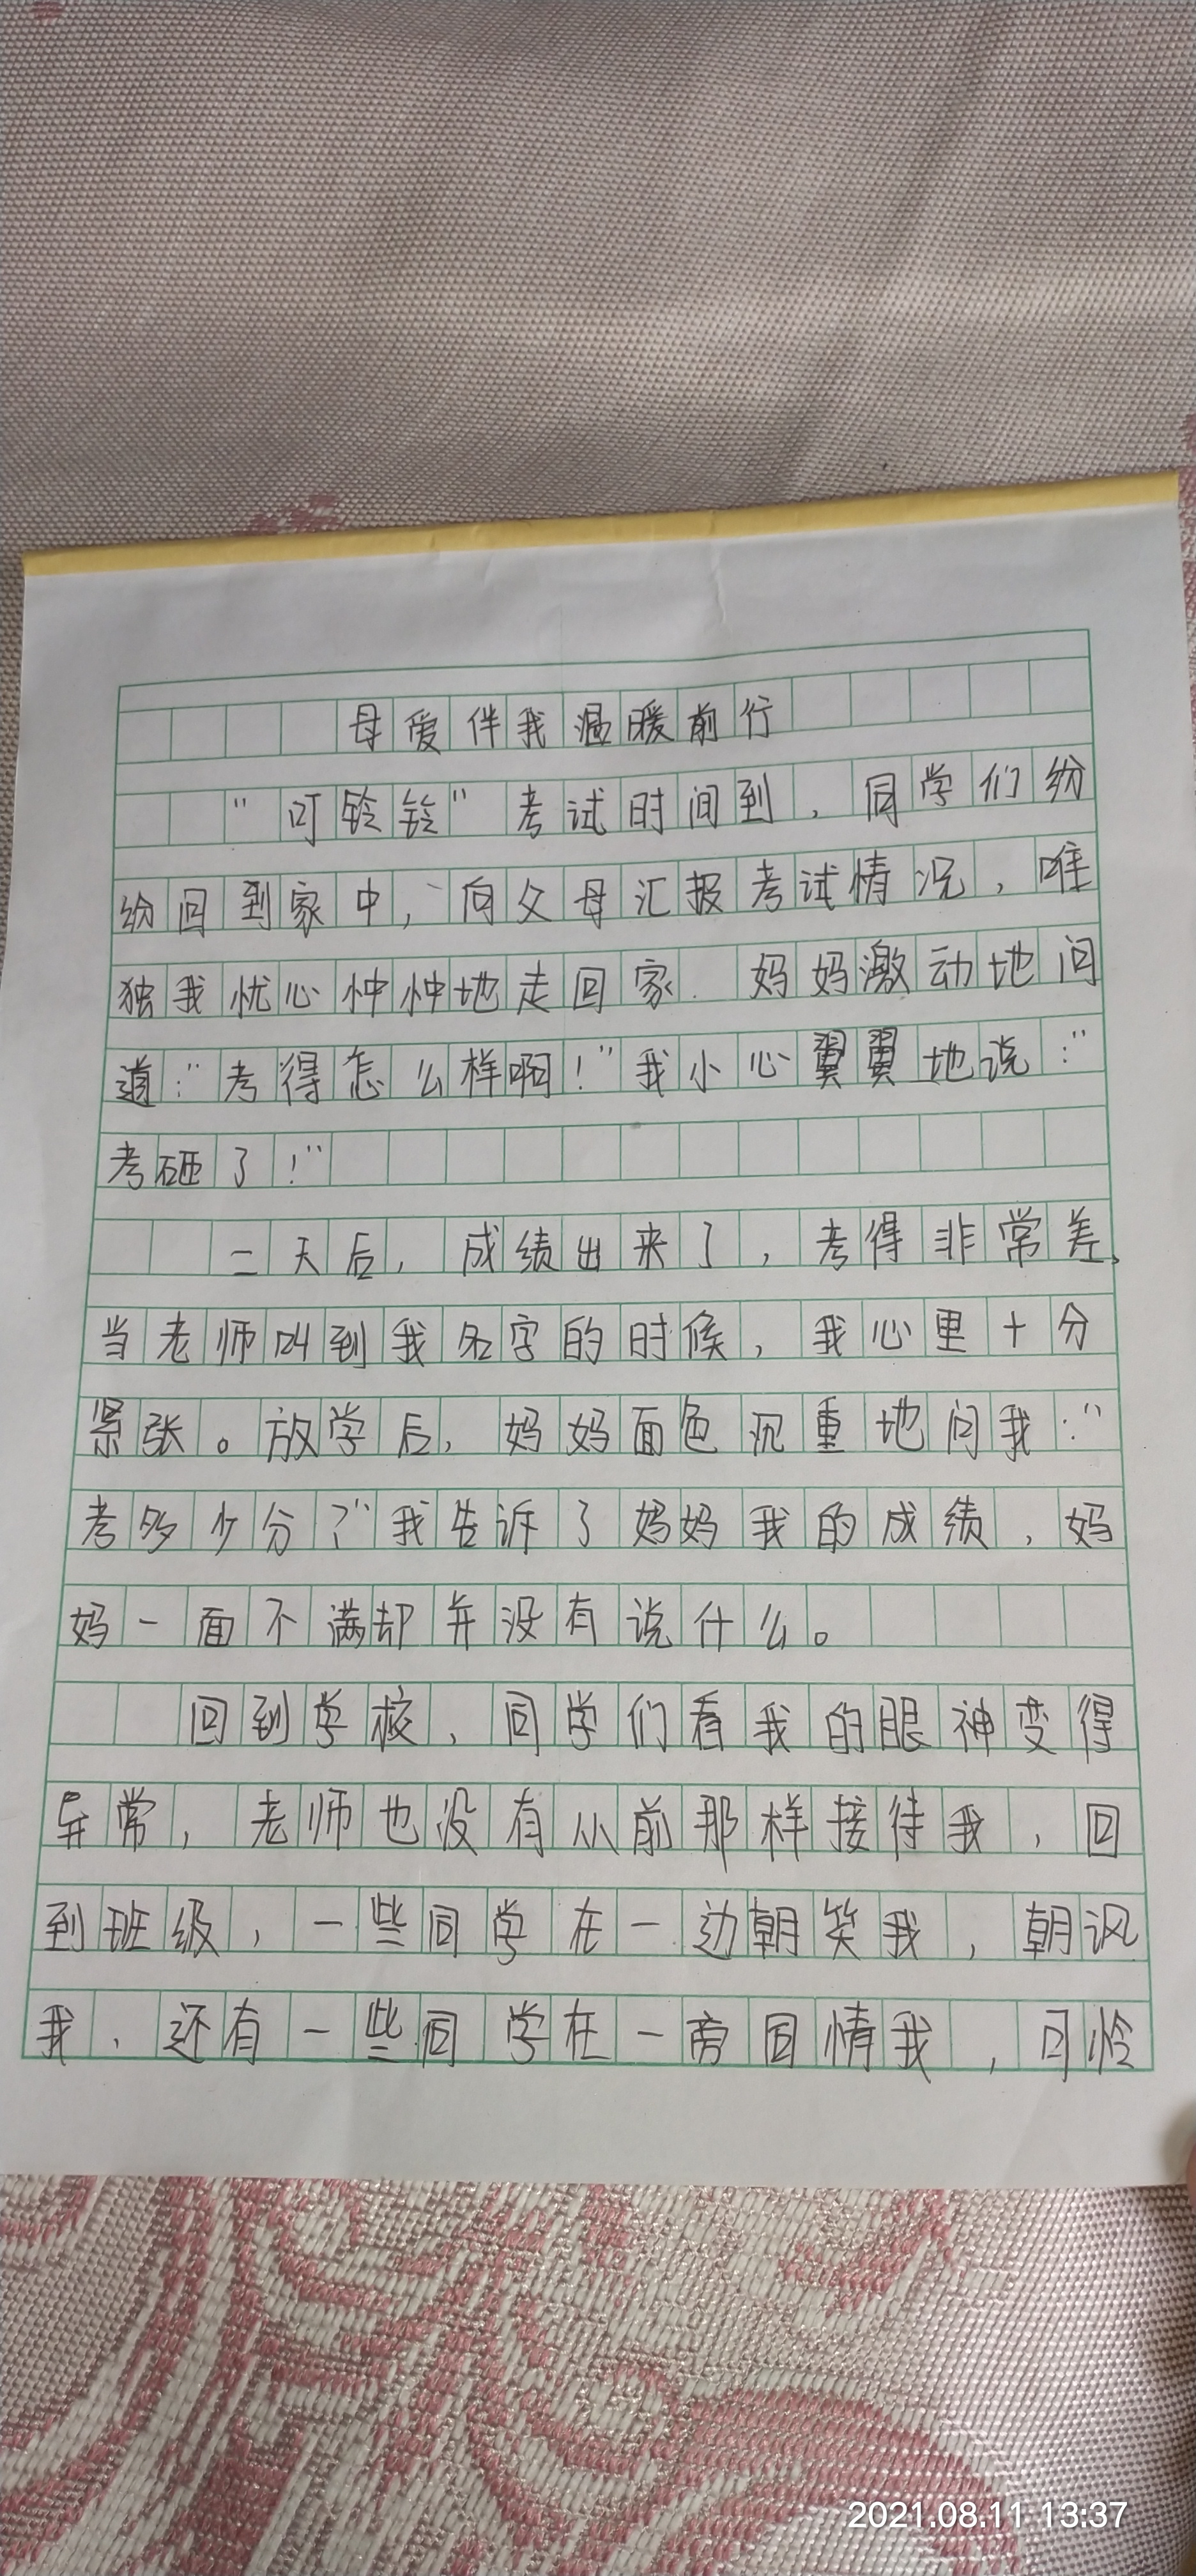 母爱伴我温暖前行
“叮铃铃”考试时间到,同学们纷
纷回到家中,向父母汇报考试情况,唯
独我忧心忡忡地走回家.妈妈激动地问
道:“考得怎么样啊!”我小心翼翼地说:“
考砸了!”
二天后,成绩出来了,考得非常差、
当老师叫到我名字的时候,我心里十分
紧张。放学后,妈妈面色沉重地问我:“
考多少分?”我告诉了妈妈我的成绩,妈
妈一面不满却并没有说什么。
回到学校,同学们看我的眼神变得
异常,老师也没有从前那样接待我,回
到班级,一些同学在一边朝笑我,朝讽
我、还有一些同学在一旁同情我,可怜
2021.08.11 13:37